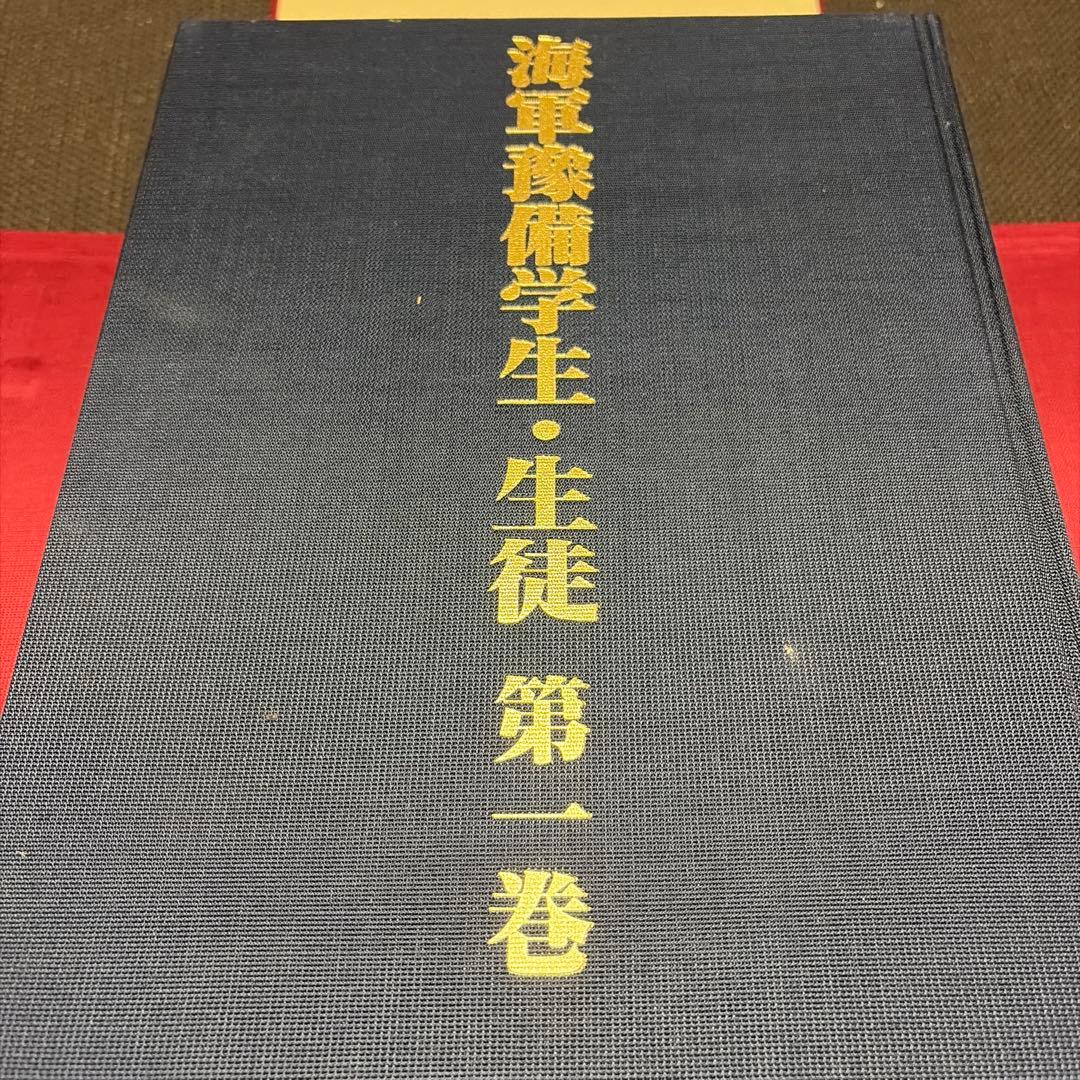 海軍豫備学生・生徒 第一巻